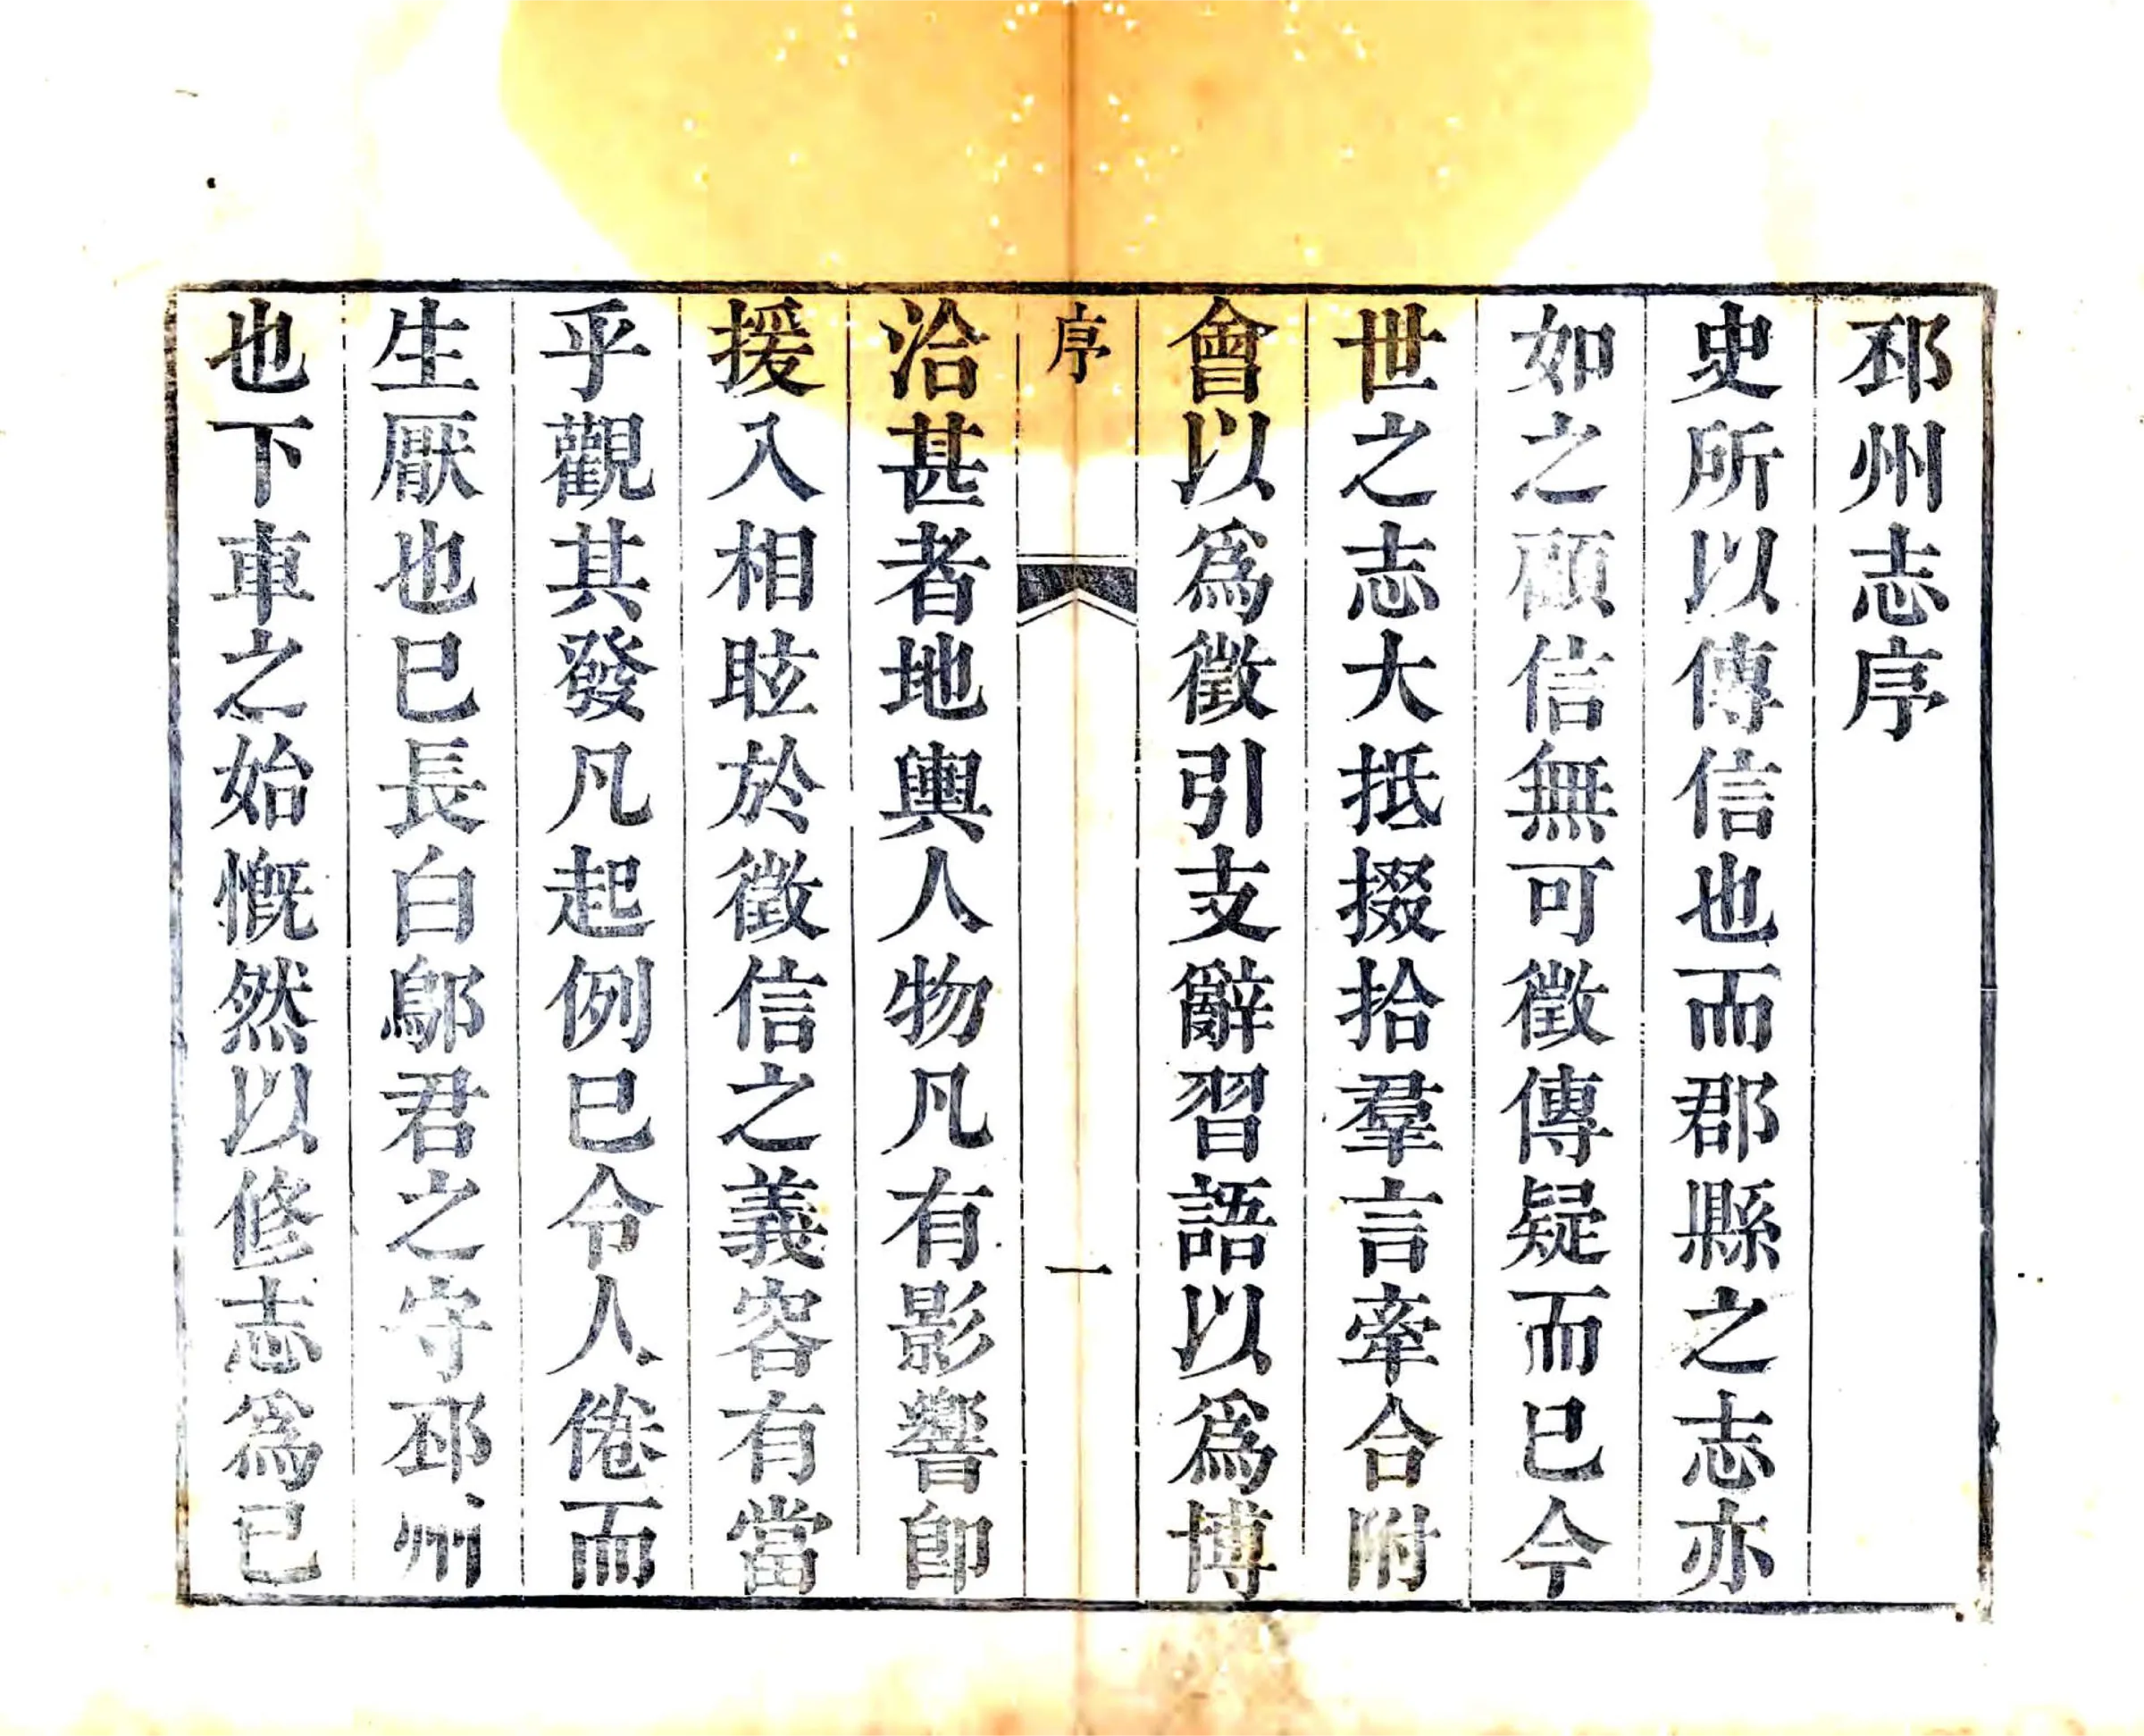 邳州志序
史所以傳信也而郡縣之志亦
如之顧信無可徵傳疑而已今
世之志大抵掇拾羣言牽合附
會以爲徵引支辭習語以爲博
序
一
洽甚者地輿人物凡有影響卽
援入相眩於徵信之義容有當
乎觀其發凡起例已令人倦而
生厭也已長白鄔君之守邳州
也下車之始慨然以修志爲已